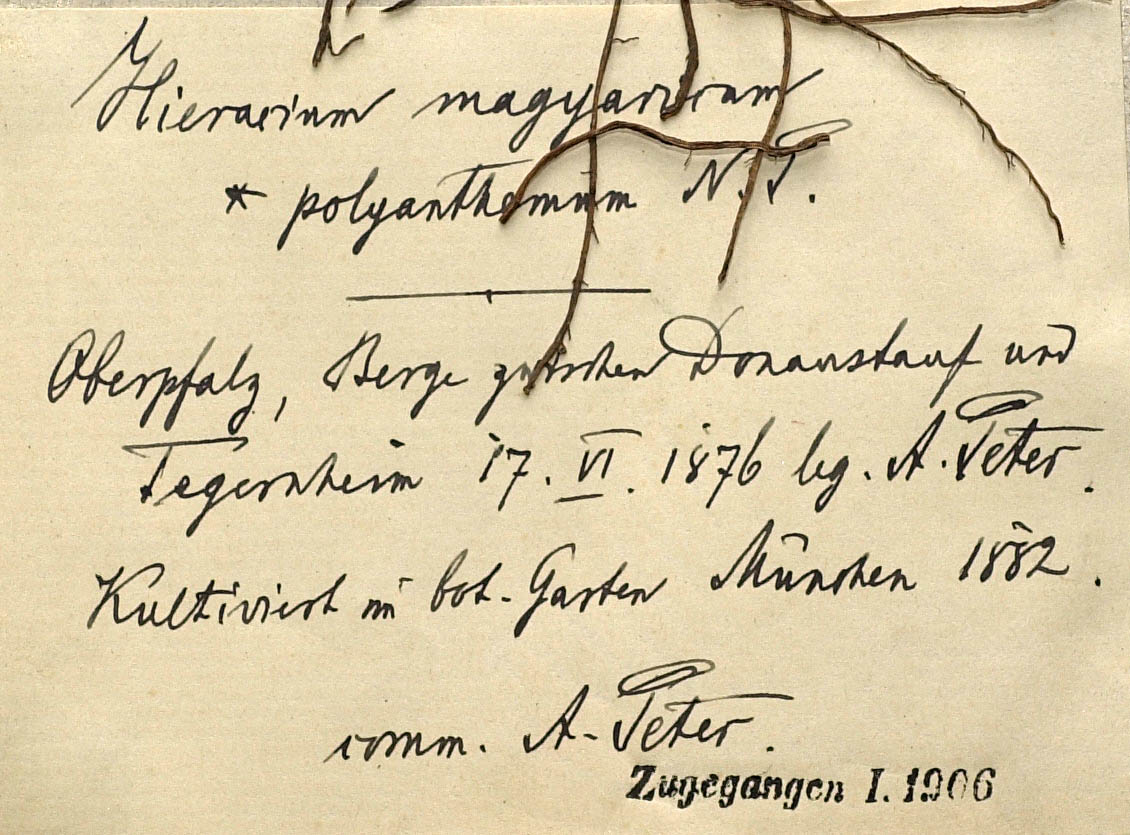 Hieracium magyaricum
* polyanthemum N.P.
Oberpfalz, Berge zwischen Donaustauf und
Tegernheim 17. VI. 1876 leg. A. Peter.
Kultiviert im bot. Garten München 1882.
comm. A. Peter.
Zugegangen I. 1906